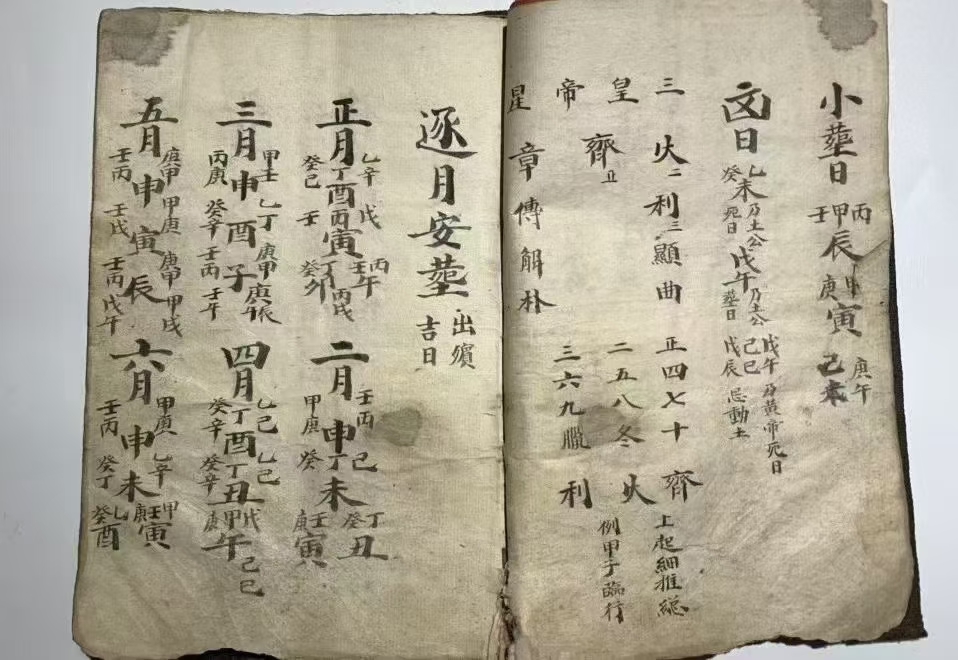 小塟日 壬甲丙辰 庚甲寅 己未 庚午
日 癸乙未 乃土公死日 戊午 乃土公塟日 戊午 己巳 戊辰 乃黃帝死日 忌動土
三 火二 利三 顯曲 正四七十 齊 上起細推縂
皇 齊五 二五八冬 火 例甲子臨行
帝 三六九臘 利
星 章傳觧朴
逐月安塟 出殯吉日
正月 乙辛丁癸己酉 戊丙壬寅 丙壬午 丁癸卯 丙戌
二月 丙壬甲庚申 己丁癸未 壬庚寅 丁癸丑
三月 甲壬丙庚申 乙丁癸辛酉 庚甲壬丙子 庚辰 庚午 壬午
四月 乙己丁癸辛酉 乙己丁癸辛丑 戊甲庚午 己巳
五月 庚甲壬丙申 甲庚壬戊寅 庚甲壬丙辰 甲戌 戊午
六月 甲庚壬丙申 乙辛癸丁未 甲壬庚寅 乙癸酉